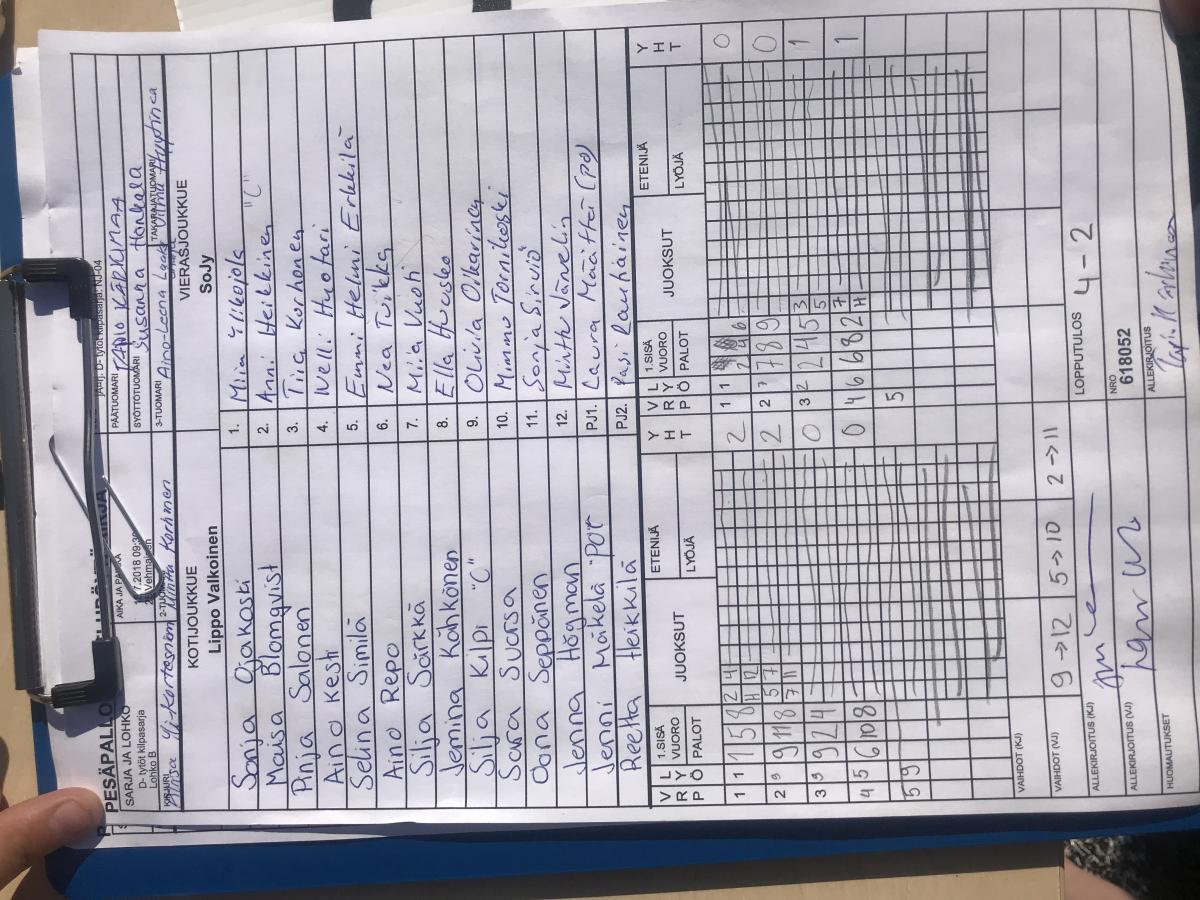 PESÄPALLO
NJ-04
SARJA JA LOHKO
D- tytöt kilpasarja
Lohko B
AIKA JA PAIKKA
2018 09:30
Vehmainen
PÄÄTUOMARI
SYÖTTÖTUOMARI Susanna Honkala
KIRJURI
2-TUOMARI Minttu Korhonen
3-TUOMARI Aino-Leena
TAKARAJATUOMARI
KOTIJOUKKUE
Lippo Valkoinen
VIERASJOUKKUE
SoJy
Sonja Ojakoski 1. Miia Ylikojola
Maisa Blomqvist 2. Anni Heikkinen "C"
Pinja Salonen 3. Tiia Korhonen
Aino Kesti 4. Nelli Huotari
Selina Similä 5. Emmi Helmi Erkkilä
Aino Repo 6. Nea Tuikka
Silja Särkkä 7. Miia Vuoti
Jemina Kähkönen 8. Ella Husko
Silja Kilpi "C" 9. Olivia Oikarinen
Sara Suorsa 10. Mimmu Tornikoski
Oona Seppänen 11. Sonja Sirviö
Jenna Högman 12. Minttu Vänelin
Jenni Mäkelä PJ1. Laura Määttä (pj)
Reetta Heikkilä PJ2. Pasi Rautiainen
V R P L Y Ö 1.SISÄ VUORO PALOT JUOKSUT ETENIJÄ LYÖJÄ Y H T V R P L Y Ö 1.SISÄ VUORO PALOT JUOKSUT ETENIJÄ LYÖJÄ Y H T
1 1 1 5 8 2 4 11 12 2 1 1 2 4 6 0
2 9 9 11 8 5 7 7 11 2 2 7 7 8 9 0
3 9 9 2 4 0 3 2 2 4 5 3 5 1
4 5 6 10 8 0 4 6 6 8 2 7 11 1
5 9 5
VAIHDOT (KJ)
VAIHDOT (VJ) 9 → 12 5 → 10 2 → 11
ALLEKIRJOITUS (KJ)
LOPPUTULOS 4 - 2
ALLEKIRJOITUS (VJ)
NRO
618052
HUOMAUTUKSET
ALLEKIRJOITUS